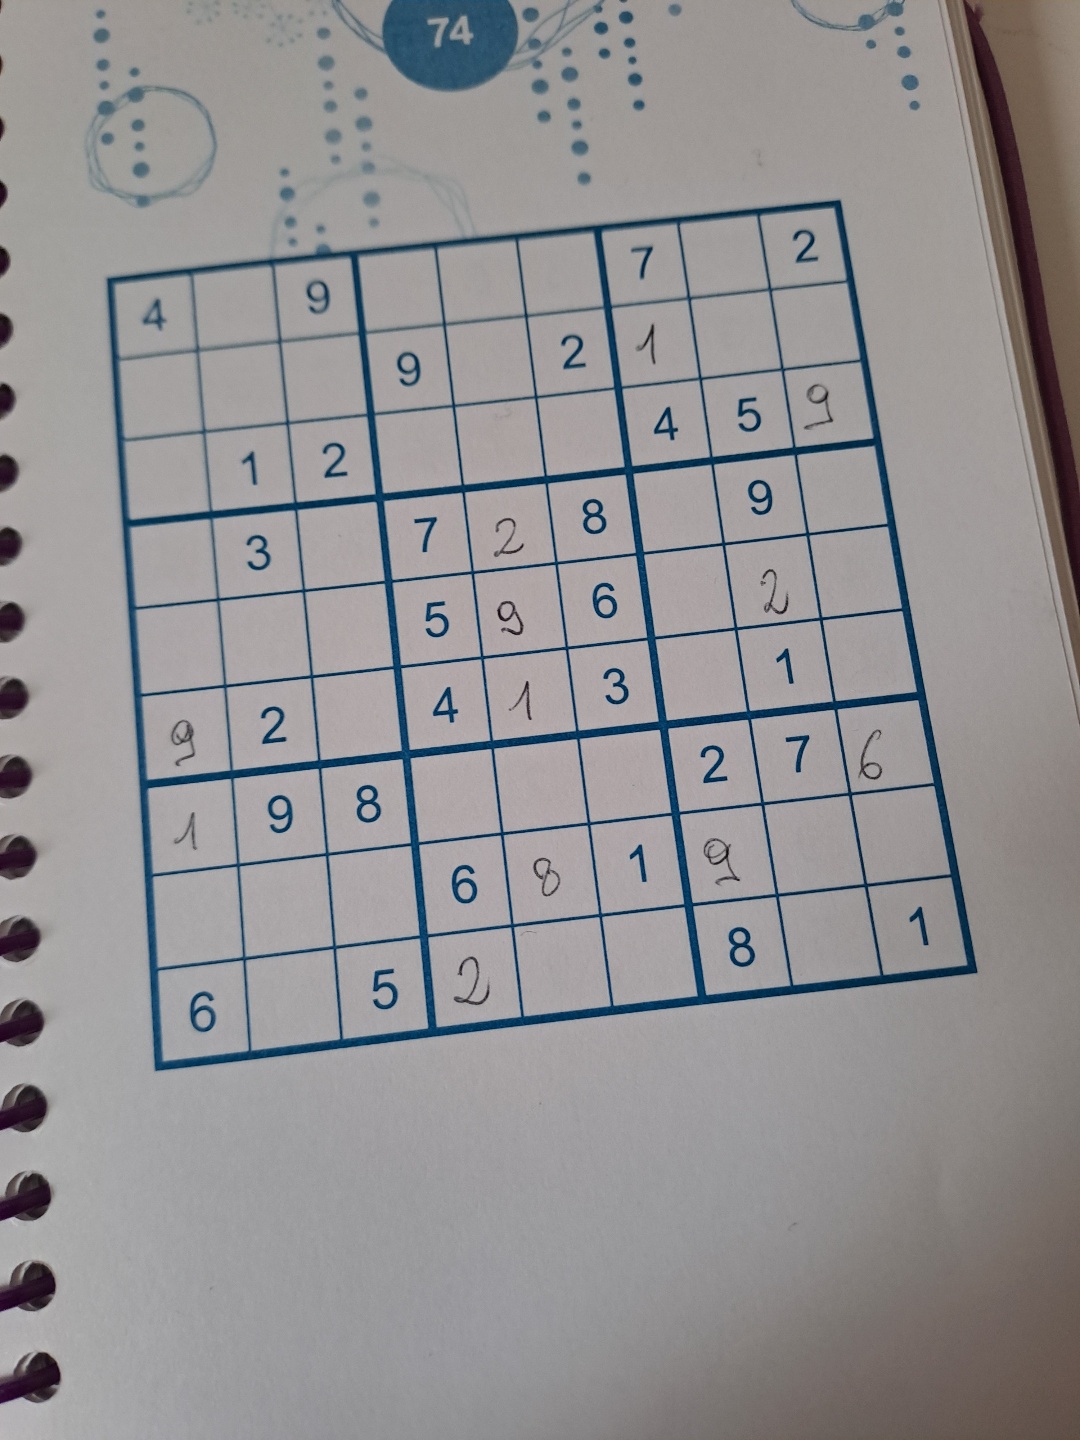 74
4 9 7 2
9 2 1
1 2 4 5 9
3 7 2 8 9
5 9 6 2
9 2 4 1 3 1
1 9 8 2 7 6
6 8 1 9
6 5 2 8 1